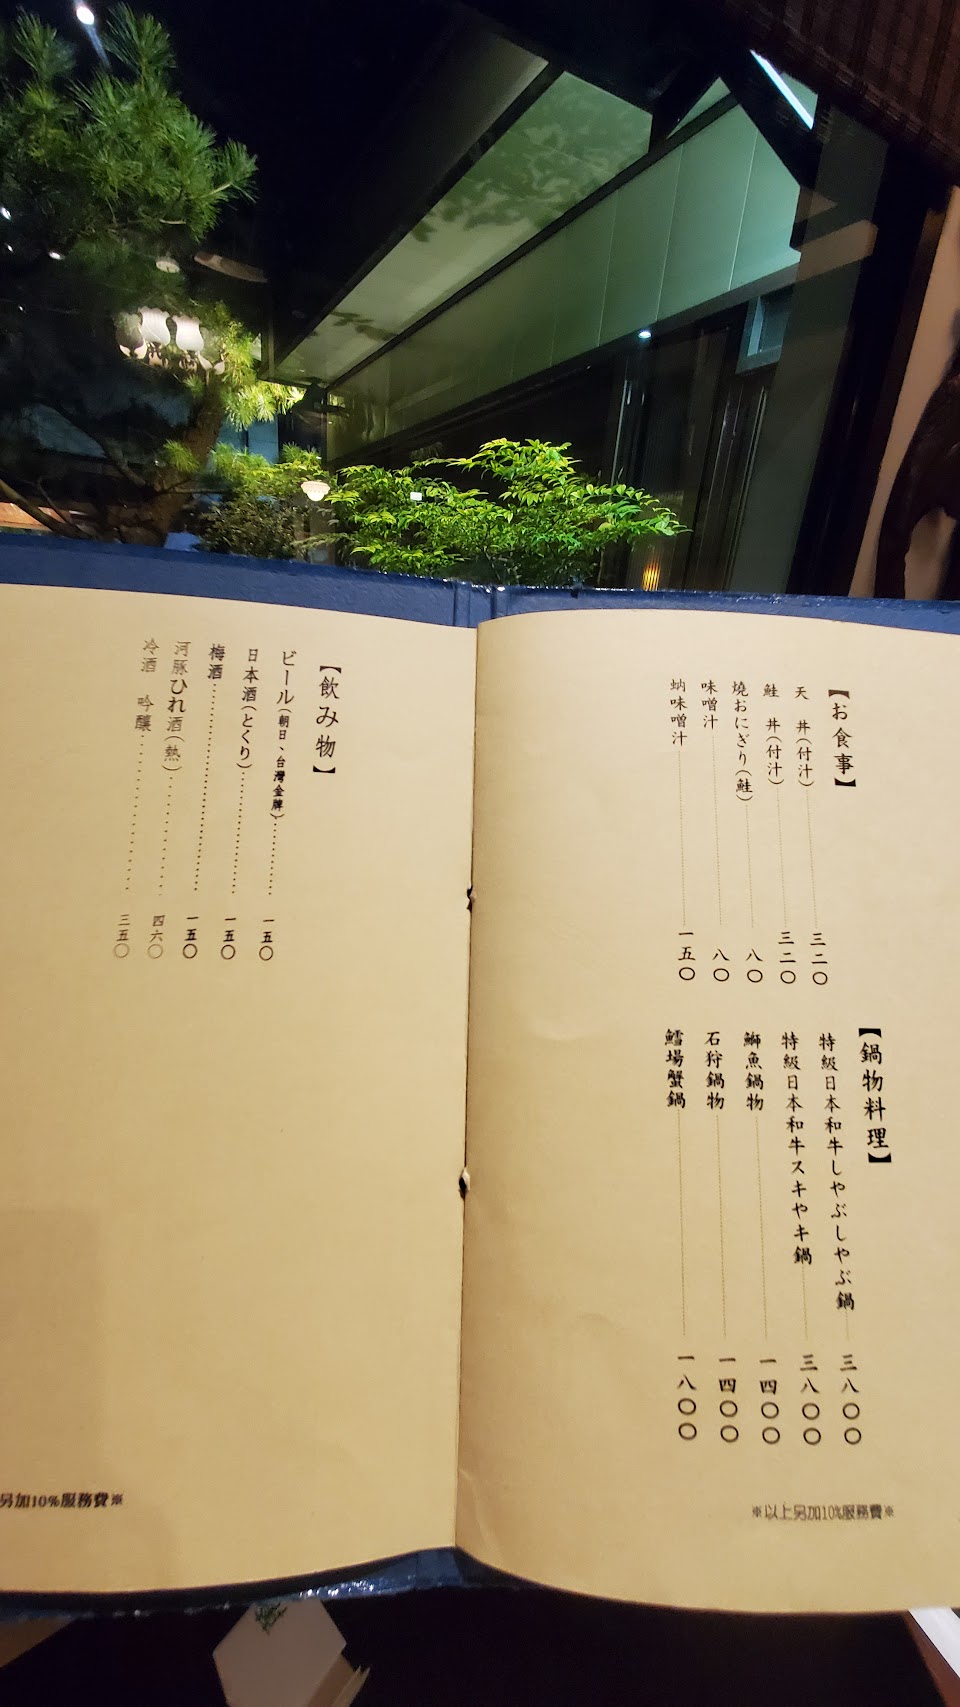 【お食事】
天　丼(付汁)　三二〇
鮭　丼(付汁)　三二〇
燒おにぎり(鮭)　八〇
味噌汁　八〇
蚋味噌汁　一五〇
【鍋物料理】
特級日本和牛しゃぶしゃぶ鍋　三八〇〇
特級日本和牛スキヤキ鍋　三八〇〇
鰤魚鍋物　一四〇〇
石狩鍋物　一四〇〇
鱈場蟹鍋　一八〇〇
※以上另加10%服務費※
【飲み物】
ビール(朝日、台灣金牌)　一五〇
日本酒(とくり)　一五〇
梅酒　一五〇
河豚ひれ酒(熱)　四六〇
冷酒　吟釀　三五〇
另加10%服務費※